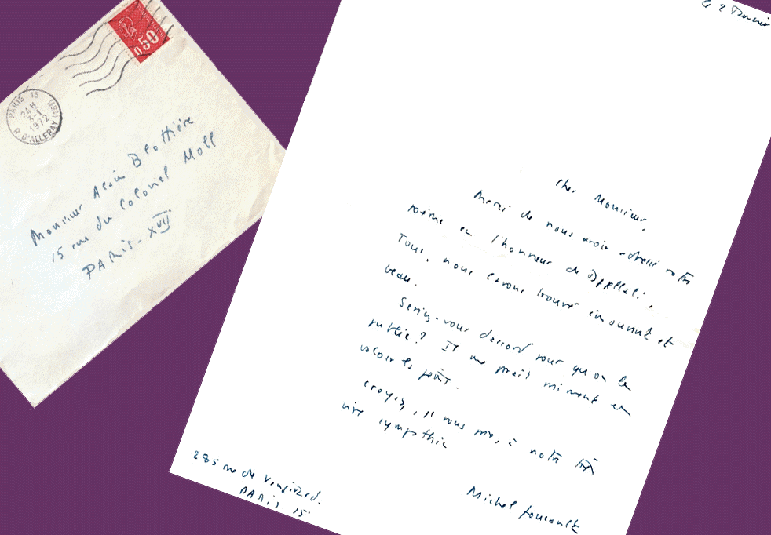 0.50
PARIS 15
24H
3-1
1972
R. D'ALLERAY
Monsieur Alain Blottière
15 rue du Colonel Moll
PARIS - XVII
Le 2 Janvier
Cher Monsieur,
Merci de nous avoir adressé votre
poème en l'honneur de
Tous, nous l'avons trouvé émouvant et
beau.
Seriez-vous d'accord pour qu'on le
publie ? Il me paraît vraiment en
valoir la peine.
Croyez, je vous prie, à notre très
vive sympathie
Michel Foucault
285 rue de Vaugirard.
PARIS 15